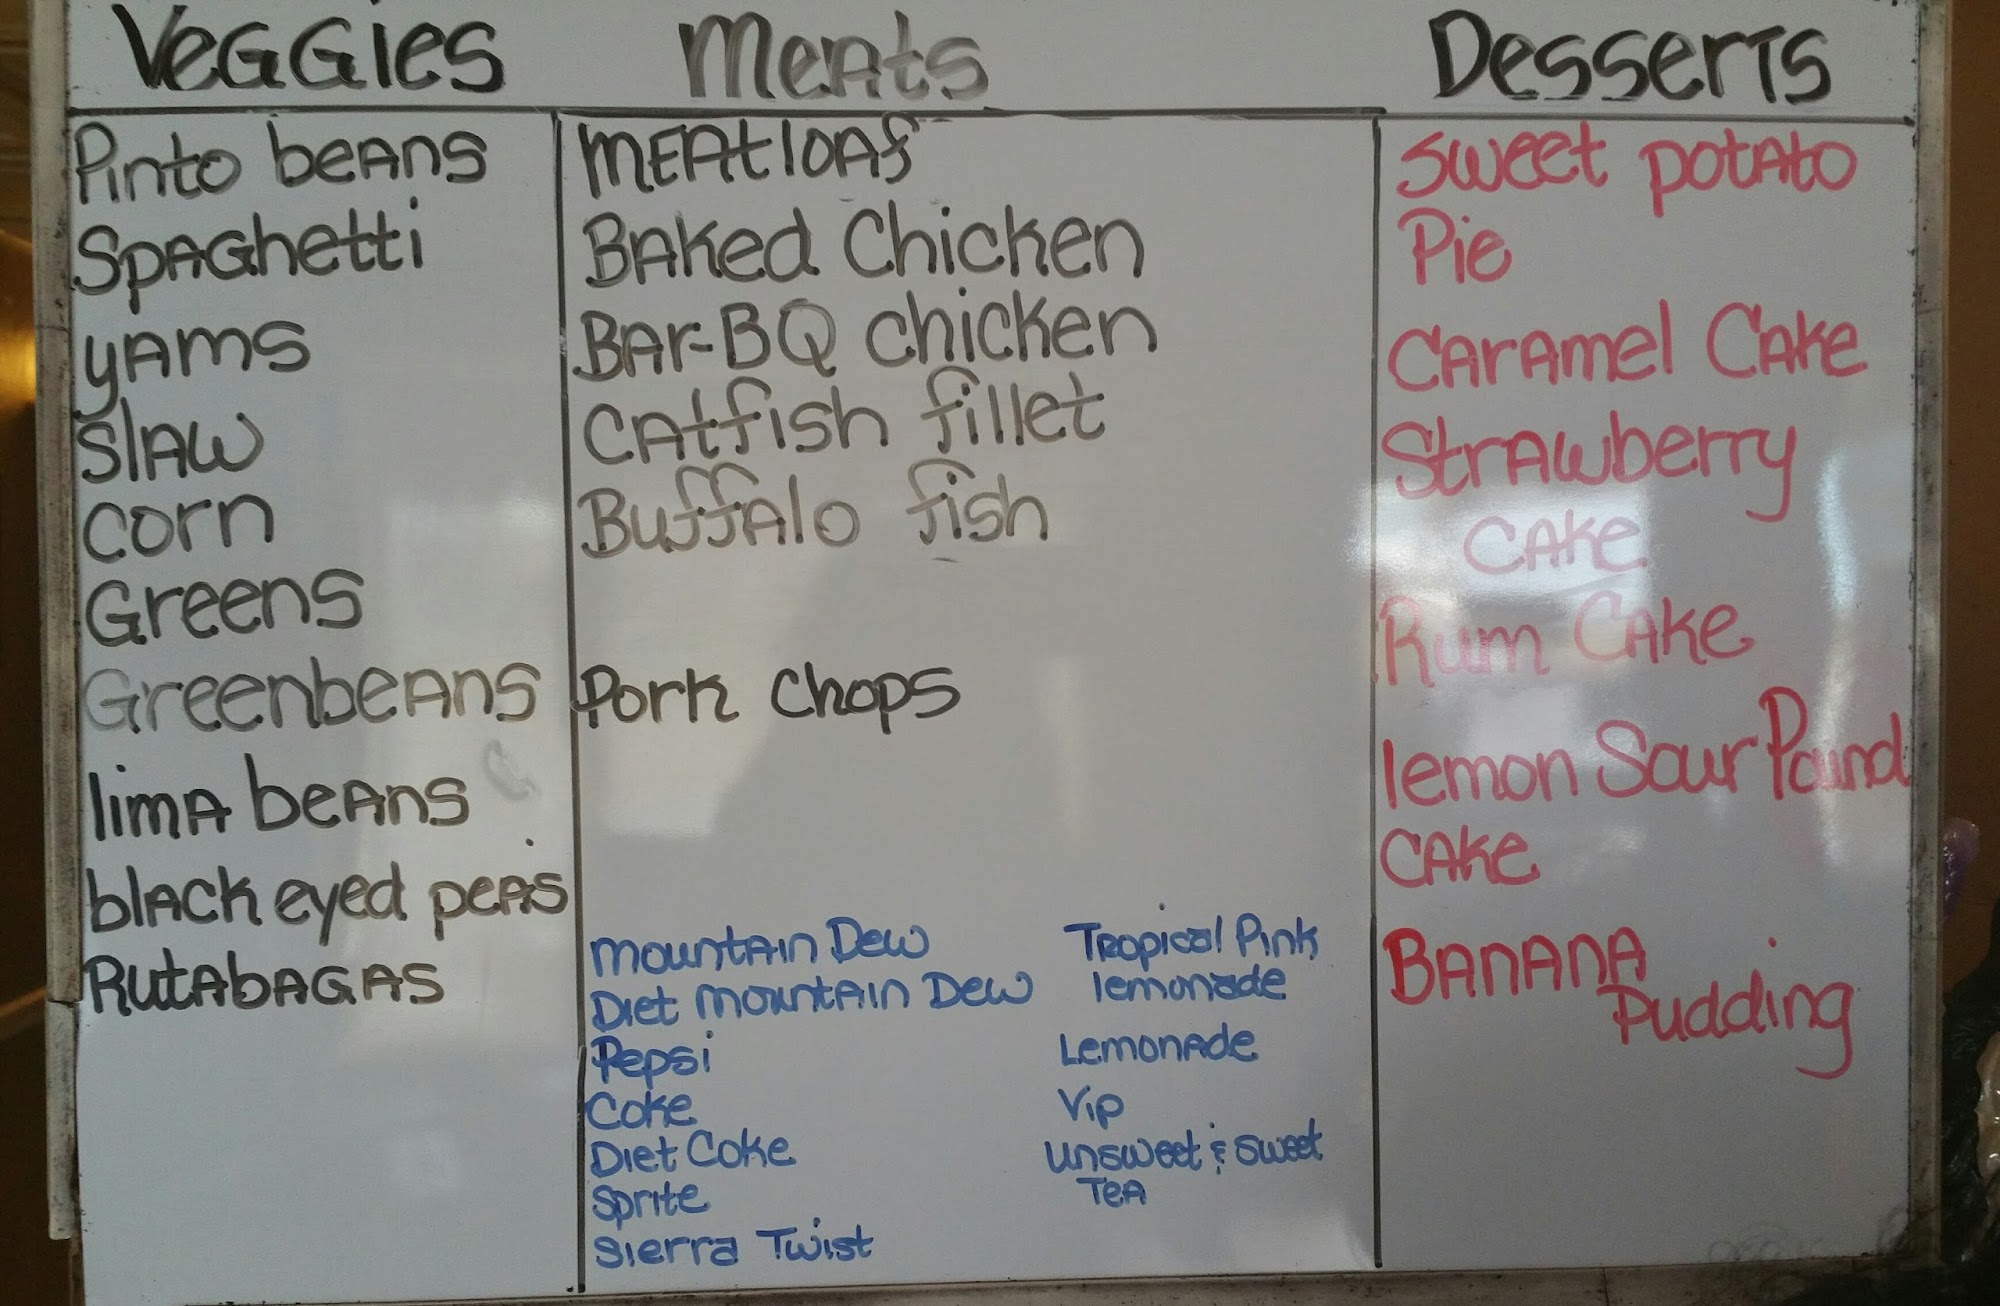 Veggies
Pinto beans
Spaghetti
yams
slaw
corn
Greens
Greenbeans
lima beans
black eyed peas
Rutabagas
Meats
Meatloaf
Baked Chicken
Bar-BQ chicken
Catfish fillet
Buffalo fish
Pork chops
Mountain Dew
Diet Mountain Dew
Pepsi
Coke
Diet Coke
Sprite
Sierra Twist
Tropical Pink
lemonade
Lemonade
Vip
unsweet & sweet
Tea
Desserts
Sweet potato
Pie
Caramel Cake
Strawberry
Cake
Rum Cake
lemon Sour Pound
Cake
Banana
Pudding